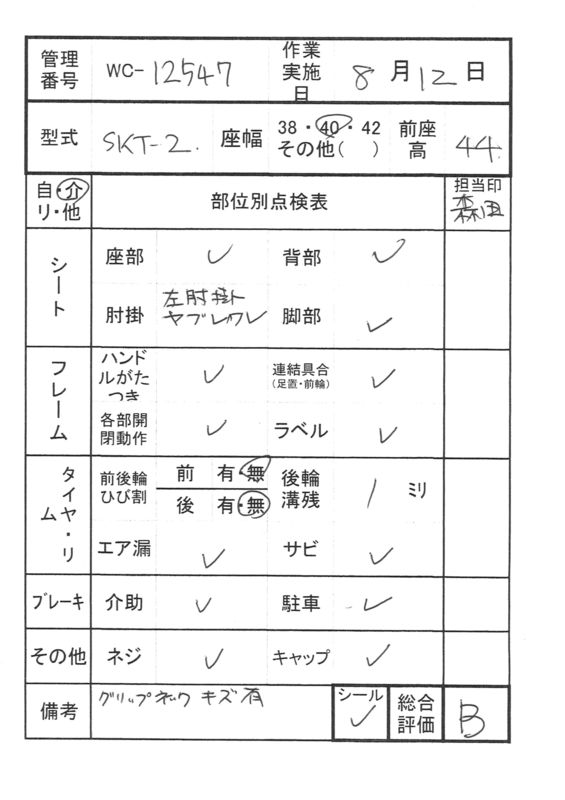 管理番号 WC-12547 作業実施日 8月12日
型式 SKT-2. 座幅 38・40・42 その他( ) 前座高 44.
自・介 リ・他 部位別点検表 担当印 森田
シート 座部 ✓ 背部 ✓
肘掛 左肘掛ト ヤブレワレ 脚部 ✓
フレーム ハンドルがたつき ✓ 連結具合 (足置・前輪) ✓
各部開閉動作 ✓ ラベル ✓
タイヤ・リム 前後輪ひび割 前 有・無 後輪溝残 1 ミリ
後 有・無
エア漏 ✓ サビ ✓
ブレーキ 介助 ✓ 駐車 ✓
その他 ネジ ✓ キャップ ✓
備考 グリップ キズ有 シール ✓ 総合評価 B